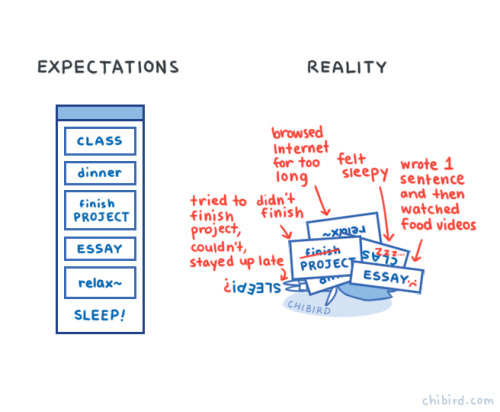 EXPECTATIONS
CLASS
dinner
finish
PROJECT
ESSAY
relax~
SLEEP!
REALITY
browsed
Internet
for too
long
felt
sleepy
wrote 1
sentence
and then
watched
food videos
tried to
finish
project,
couldn't,
stayed up late
didn't
finish
relax~
zzz...
CLAS
finish
PROJECT
ESSAY
SLEEP!?
CHIBIRD
chibird.com